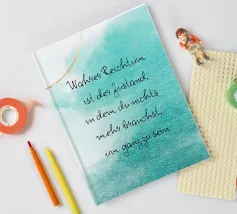 Wahrer Reichtum
ist der Zustand,
in dem du nichts
mehr brauchst,
um ganz zu sein